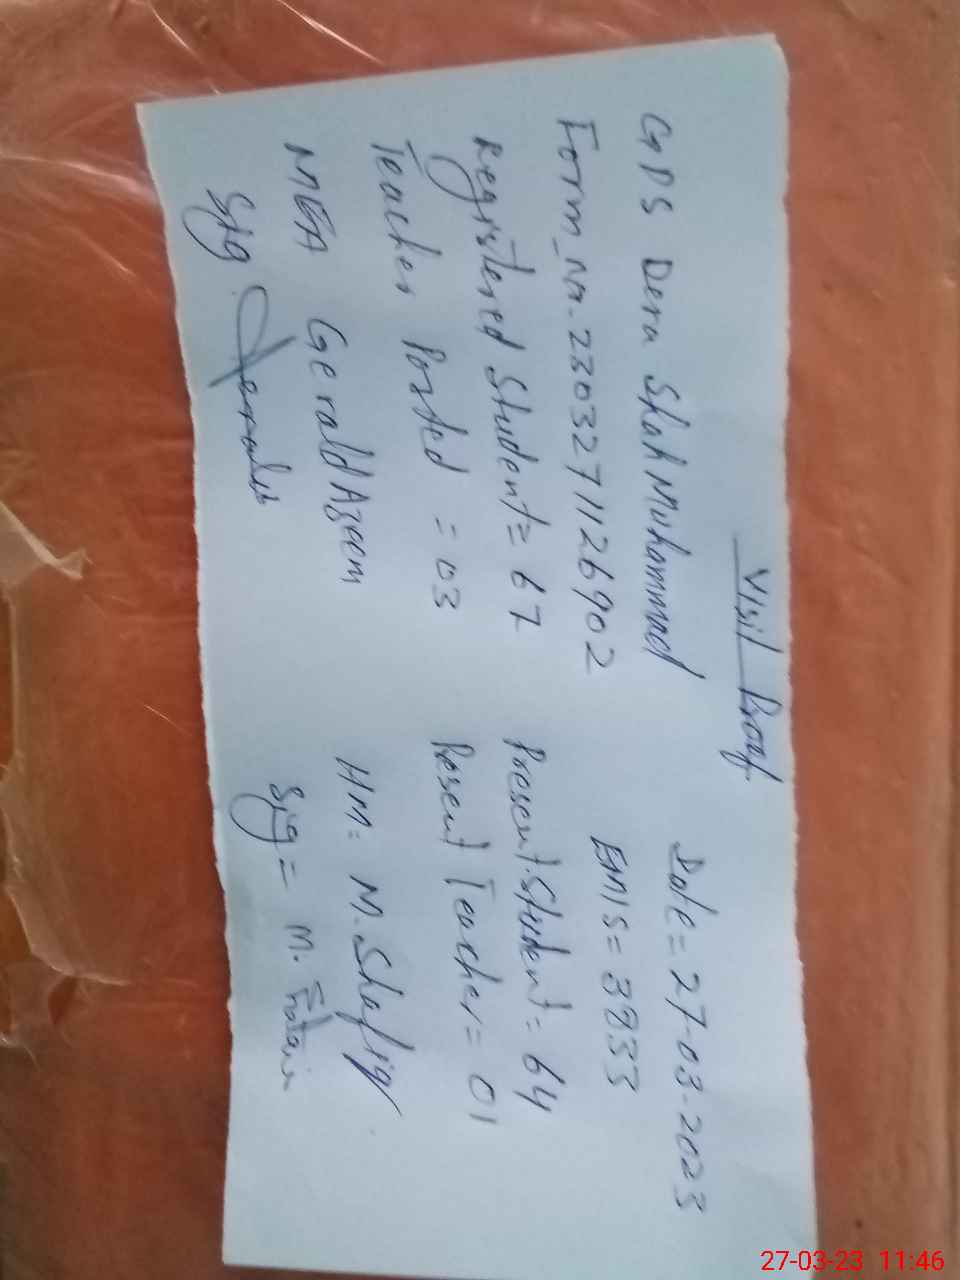 Visit Proof
GPS Dera Shah Muhammad Date = 27-03-2023
Form_No. 2303271126902 EMIS = 3833
Registered Student = 67 Present Student = 64
Teacher Posted = 03 Present Teacher = 01
MEA Gerald Azeem HM: M. Shafiq
Sig. Sig = M.
27-03-23 11:46